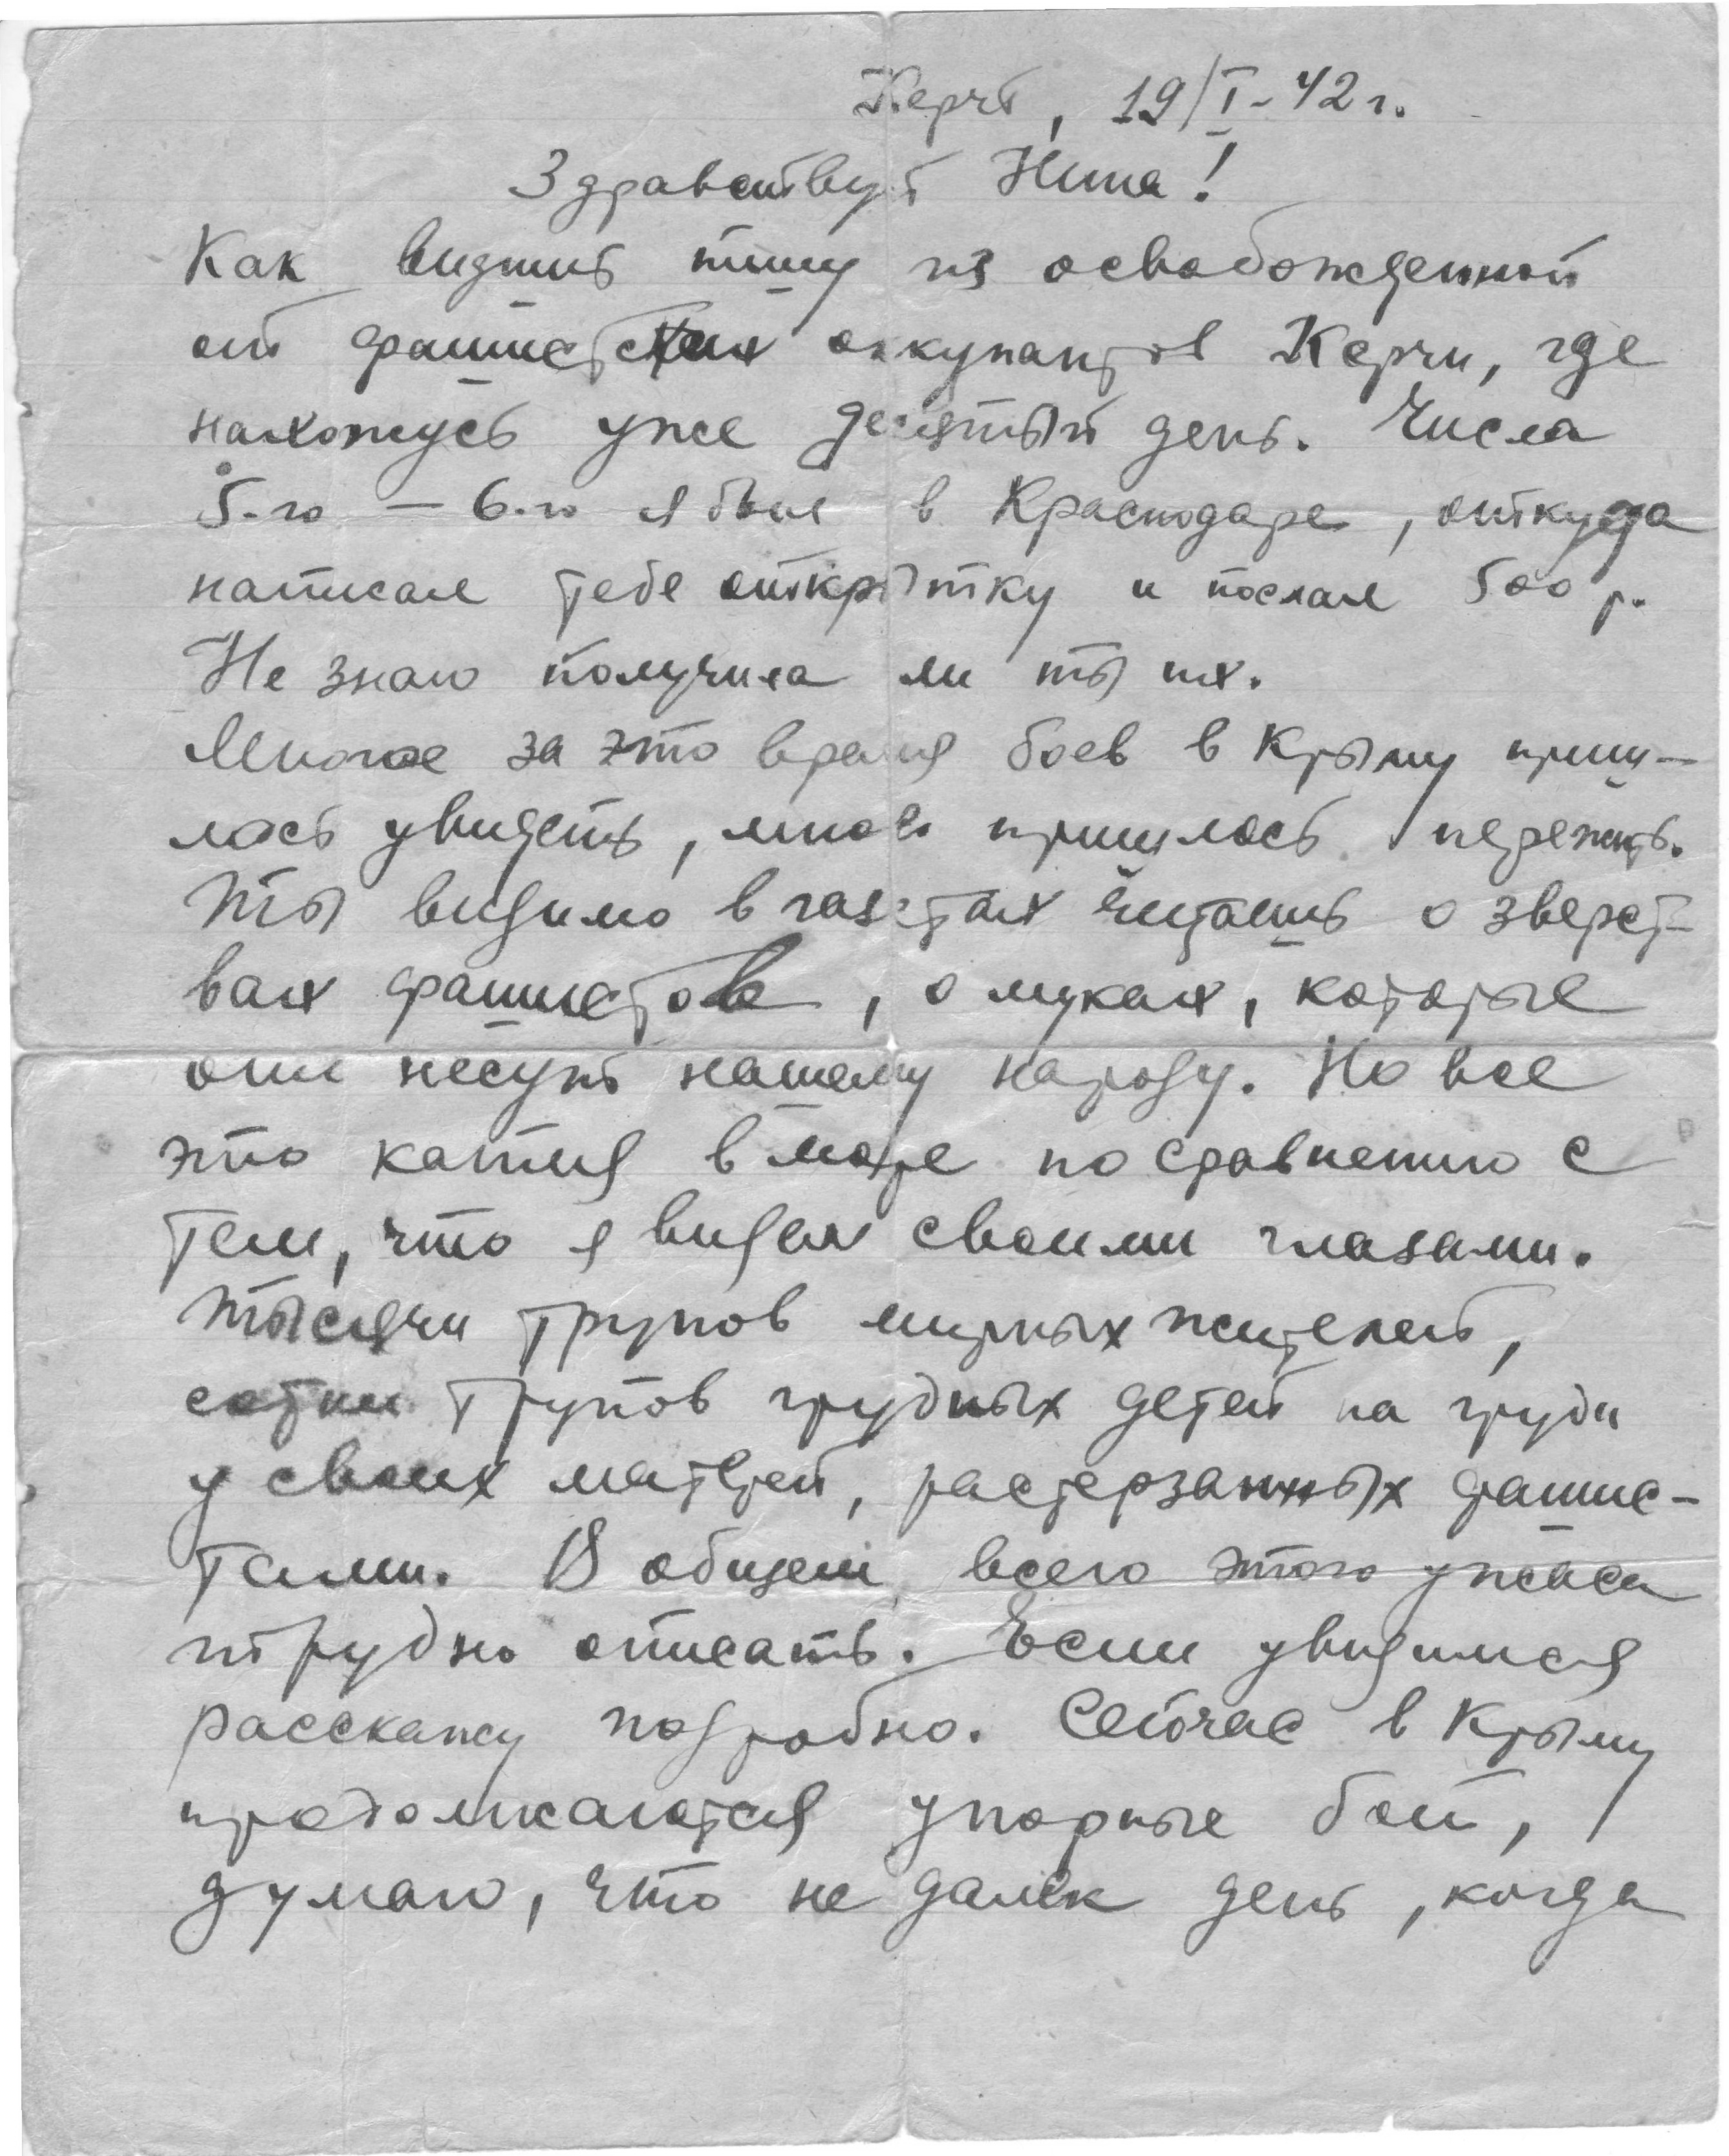 Керчь, 19/I-42 г.
Здравствуй Нина!
Как видишь пишу из освобожденной
от фашистских оккупантов Керчи, где
нахожусь уже десятый день. Числа
5-го - 6-го я был в Краснодаре, откуда
написал тебе открытку и послал 500 р.
Не знаю получила ли ты их.
Многое за это время боев в Крыму приш-
лось увидеть, много пришлось пережить.
Ты видимо в газетах читаешь о зверст-
вах фашистов, о муках, которые
они несут нашему народу. Но все
это капля в море по сравнению с
тем, что я видел своими глазами.
Тысячи трупов мирных жителей,
сотни трупов грудных детей на груди
у своих матерей, растерзанных фашис-
тами. В общем всего этого ужаса
трудно описать. Если увидимся
расскажу подробно. Сейчас в Крыму
продолжаются упорные бои,
думаю, что не далек день, когда